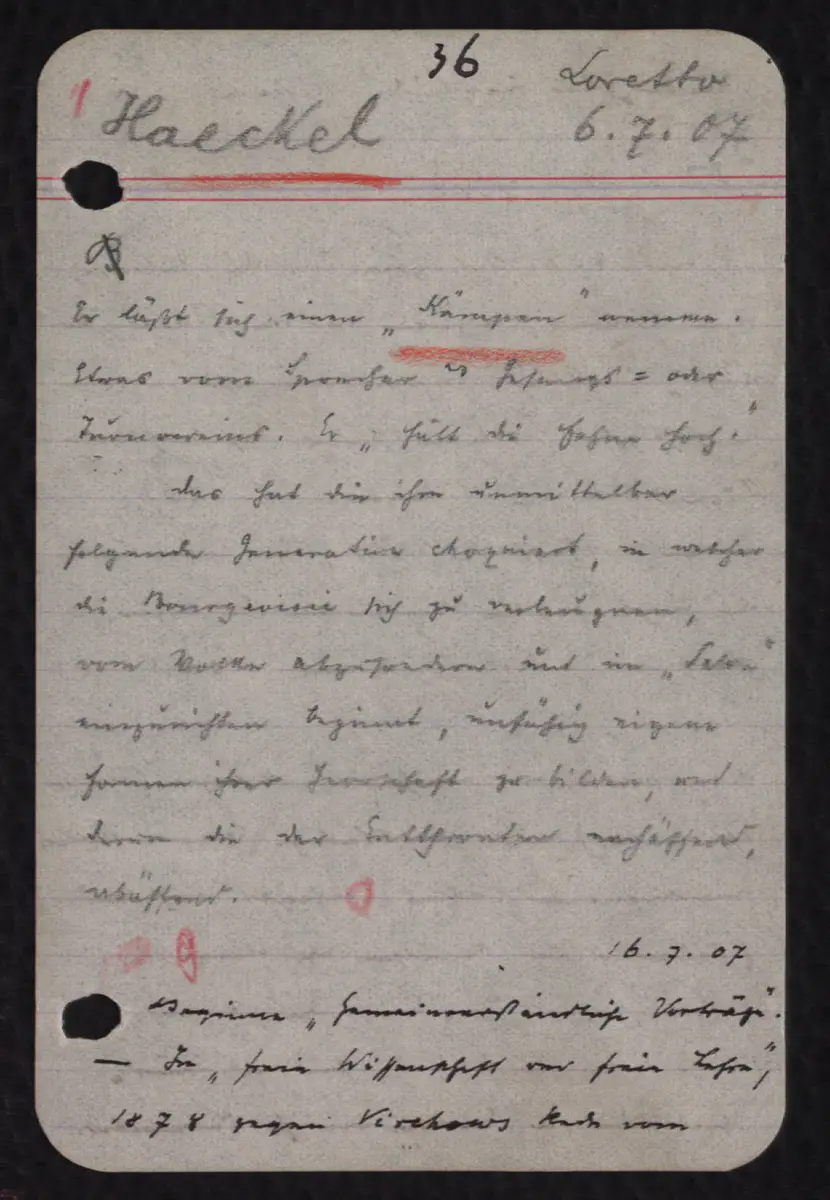 36
Loretto
1 Haeckel
6. 7. 07
B
Er läßt sich einen „Kämpen" nennen.
Etwas vom Sprecher des Gesangs= oder
Turnvereins. Er „hält die Fahne hoch."
Das hat die ihm unmittelbar
folgende Generation chokiert, in welcher
die Bourgeoisie sich zu verleugnen,
vom Volke abzusondern und im „Salon"
einzurichten beginnt, unfähig eigene
Formen ihrer Herrschaft zu bilden, und
darum die der Entthronten nachäffend,
.
16. 7. 07
Beginne „Gemeinverständliche Vorträge".
— In „freie Wissenschaft und freie Lehre",
1878 gegen Virchows Rede vom